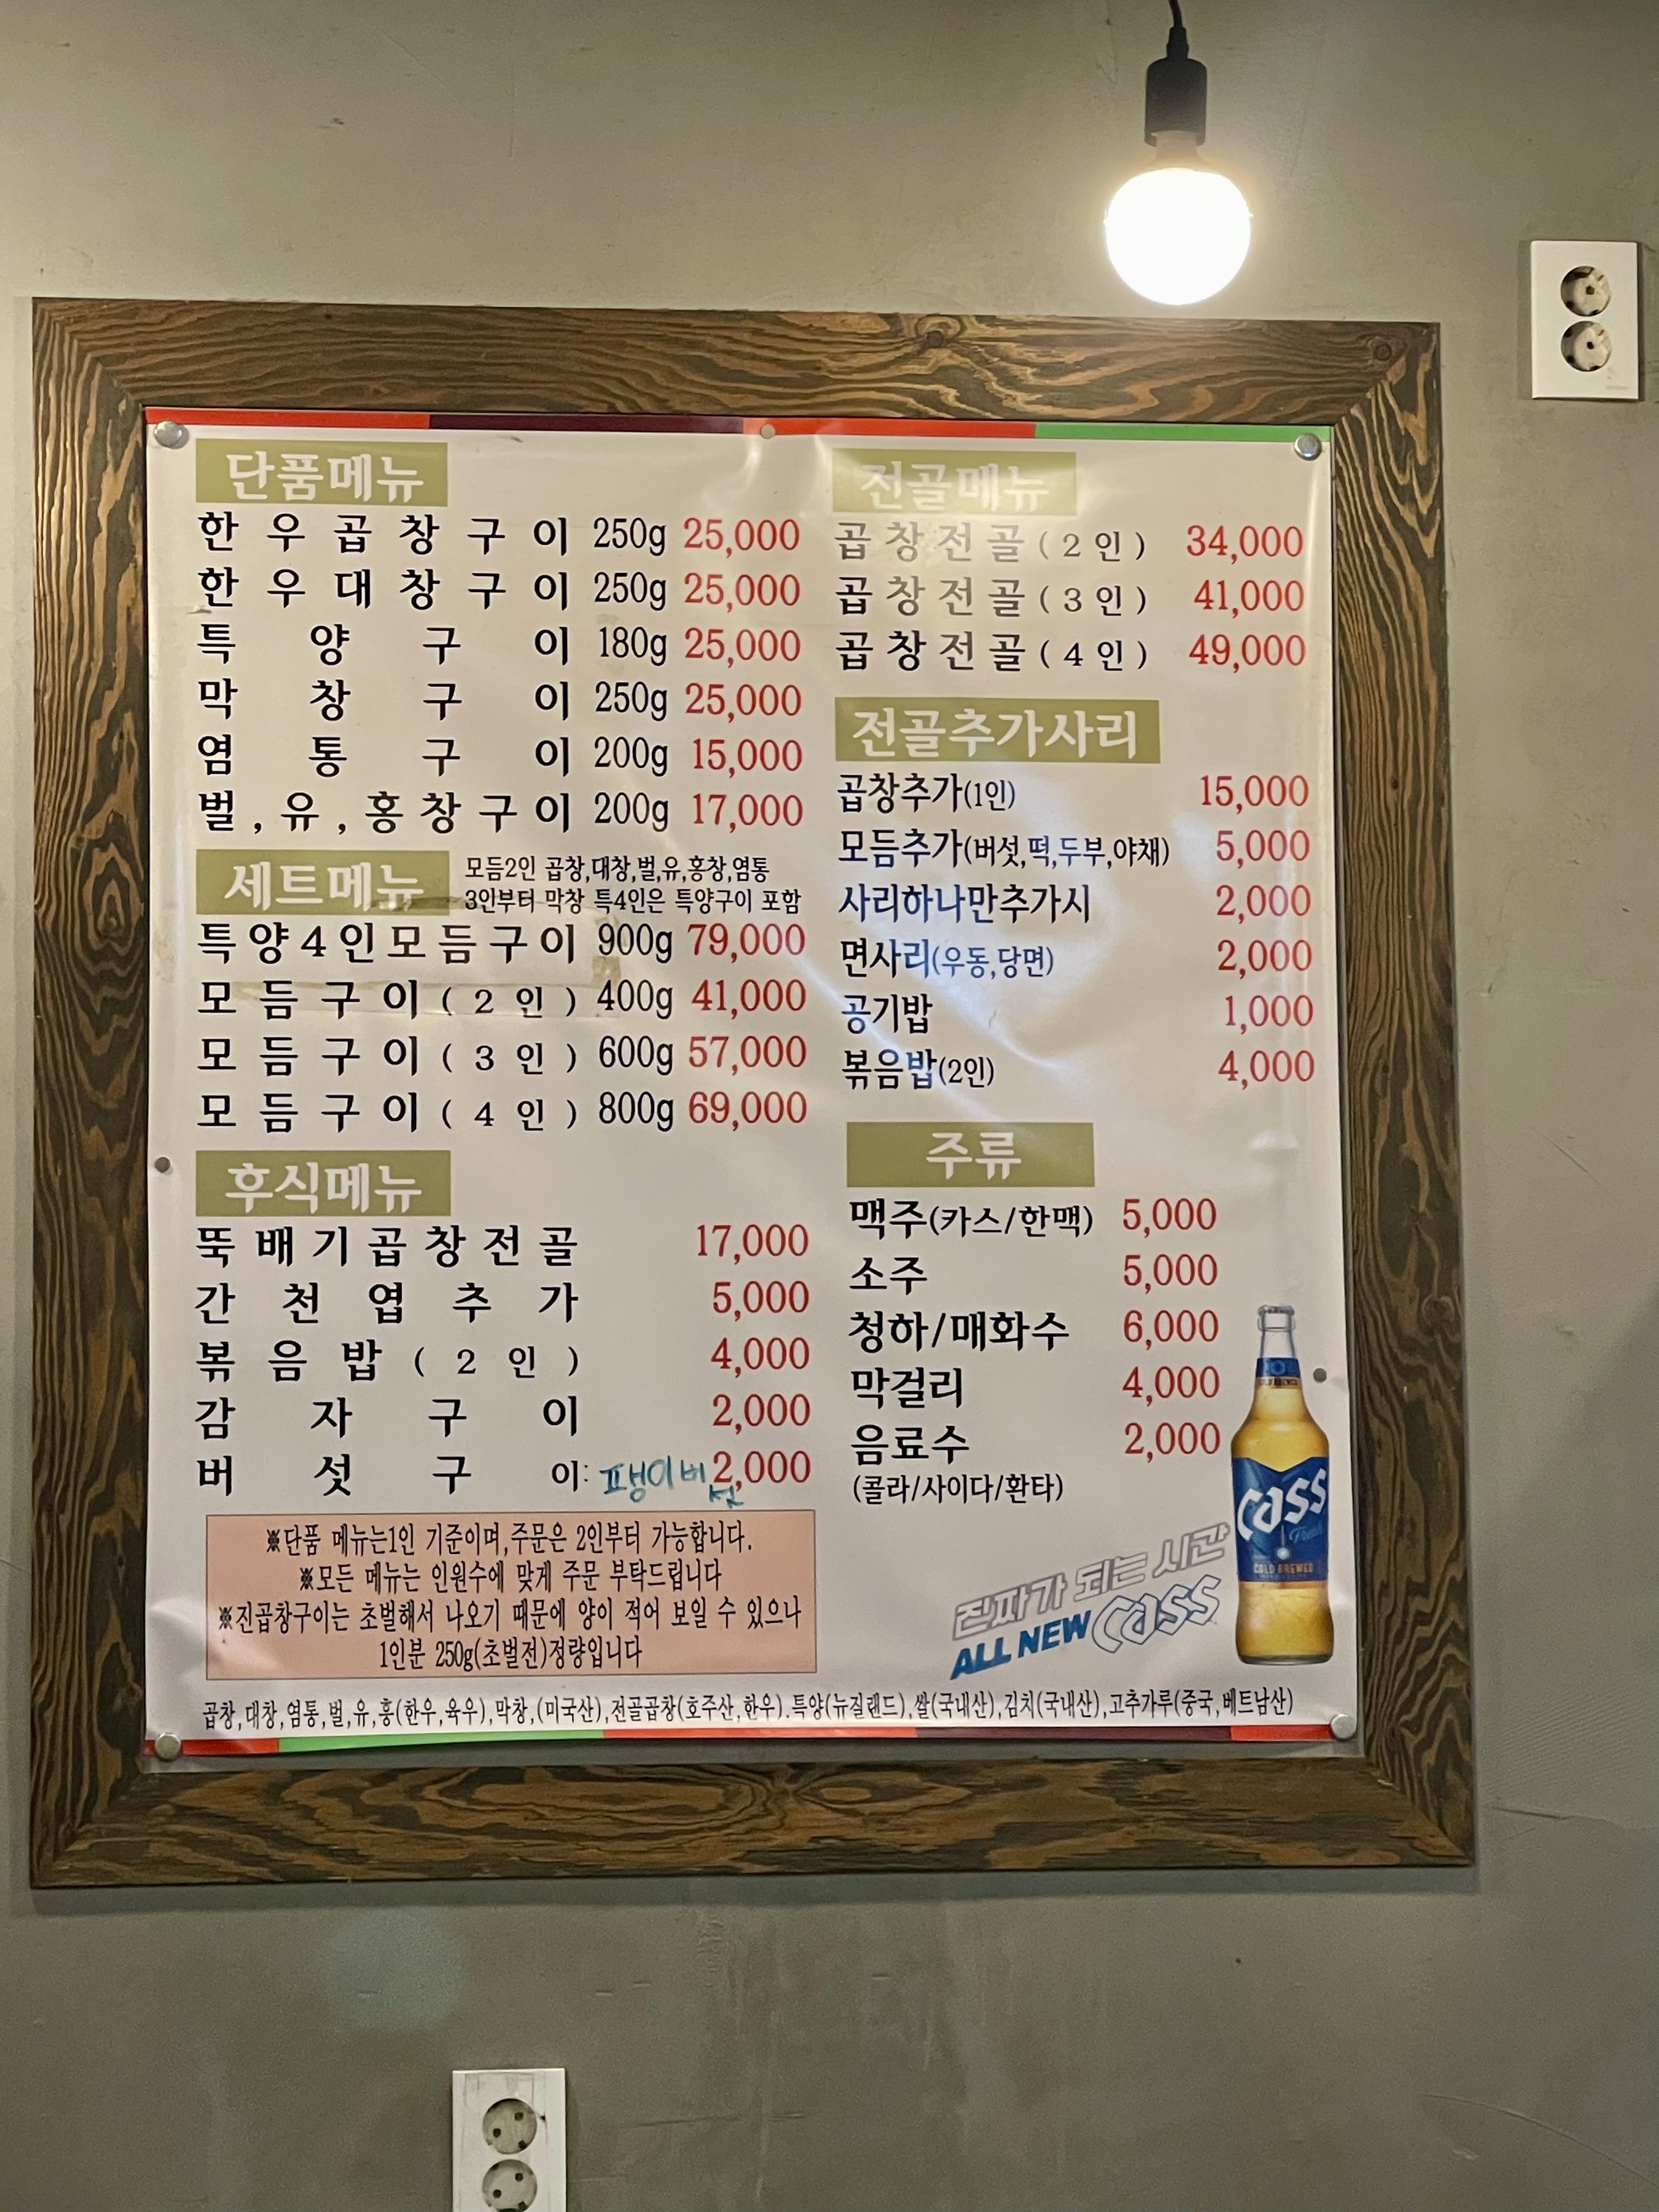 단품메뉴
한우곱창구이 250g 25,000
한우대창구이 250g 25,000
특양구이 180g 25,000
막창구이 250g 25,000
염통구이 200g 15,000
벌,유,홍창구이 200g 17,000
세트메뉴
모듬2인 곱창,대창,벌,유,홍창,염통
3인부터 막창 특4인은 특양구이 포함
특양4인모듬구이 900g 79,000
모듬구이(2인) 400g 41,000
모듬구이(3인) 600g 57,000
모듬구이(4인) 800g 69,000
후식메뉴
뚝배기곱창전골 17,000
간천엽추가 5,000
볶음밥(2인) 4,000
감자구이 2,000
버섯구이: 팽이버섯 2,000
※단품 메뉴는1인 기준이며,주문은 2인부터 가능합니다.
※모든 메뉴는 인원수에 맞게 주문 부탁드립니다
※진곱창구이는 초벌해서 나오기 때문에 양이 적어 보일 수 있으나
1인분 250g(초벌전)정량입니다
전골메뉴
곱창전골(2인) 34,000
곱창전골(3인) 41,000
곱창전골(4인) 49,000
전골추가사리
곱창추가(1인) 15,000
모듬추가(버섯,떡,두부,야채) 5,000
사리하나만추가시 2,000
면사리(우동,당면) 2,000
공기밥 1,000
볶음밥(2인) 4,000
주류
맥주(카스/한맥) 5,000
소주 5,000
청하/매화수 6,000
막걸리 4,000
음료수 2,000
(콜라/사이다/환타)
진짜가 되는 시간
ALL NEW Cass
Cass
Fresh
COLD BREWED
곱창,대창,염통,벌,유,홍(한우,육우),막창,(미국산),전골곱창(호주산,한우).특양(뉴질랜드),쌀(국내산),김치(국내산),고추가루(중국,베트남산)